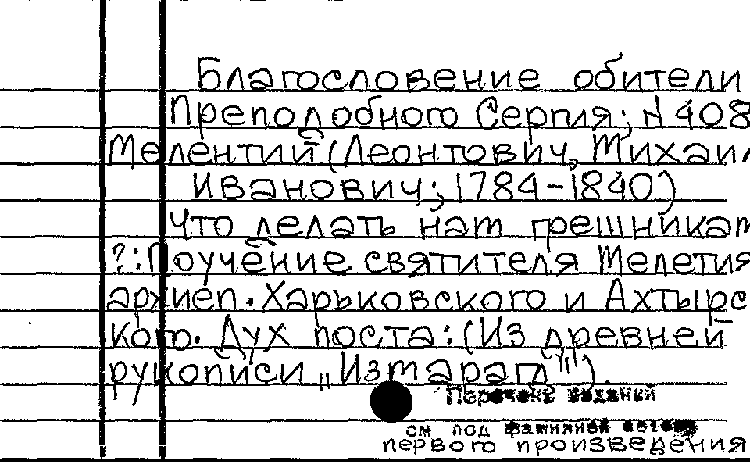 Благословение обители
Преподобного Сергия; N 408
Мелентий (Леонтович, Михаил
Иванович; 1784-1840)
Что делать нам грешникам
?: Поучение святителя Мелетия
архиеп. Харьковского и Ахтырс
кого. Дух поста: (Из древней
рукописи „Измарагд"").
Перечень изданий
см под фамилией автора
первого произведения